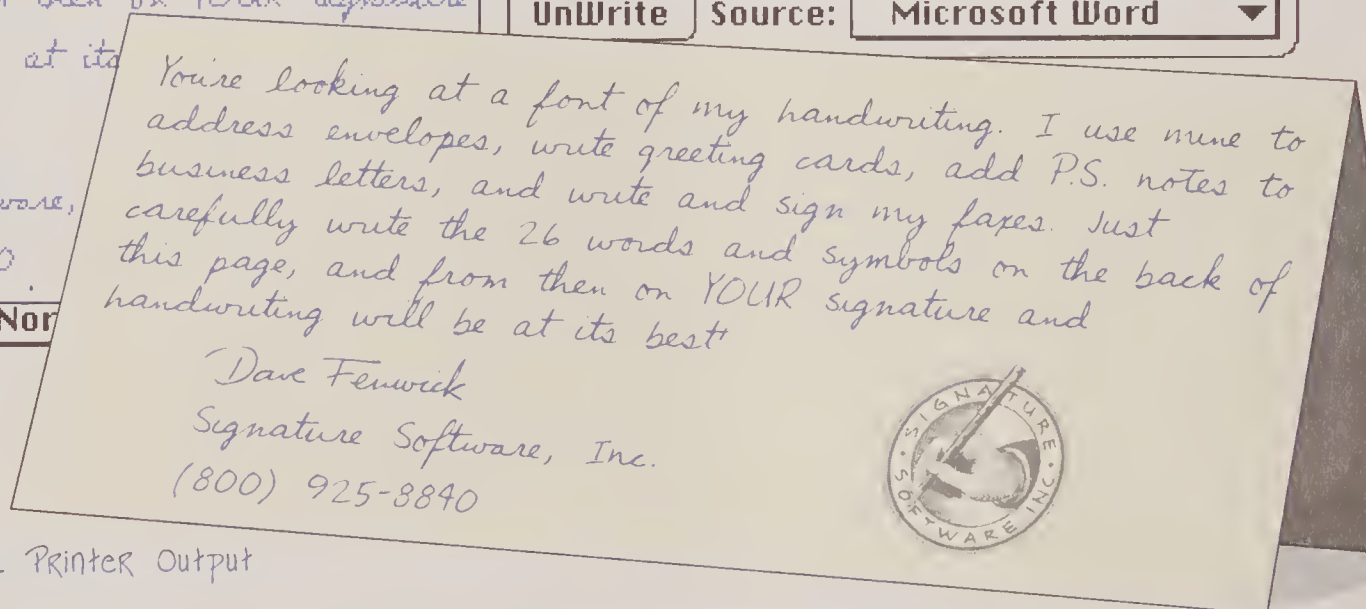 YOUR signature
UnWrite Source: Microsoft Word
at its
You're looking at a font of my handwriting. I use mine to
address envelopes, write greeting cards, add P.S. notes to
business letters, and write and sign my faxes. Just
carefully write the 26 words and symbols on the back of
this page, and from then on YOUR signature and
handwriting will be at its best!
Dave Fenwick
Signature Software, Inc.
(800) 925-8840
SIGNATURE • SOFTWARE INC •
Printer Output